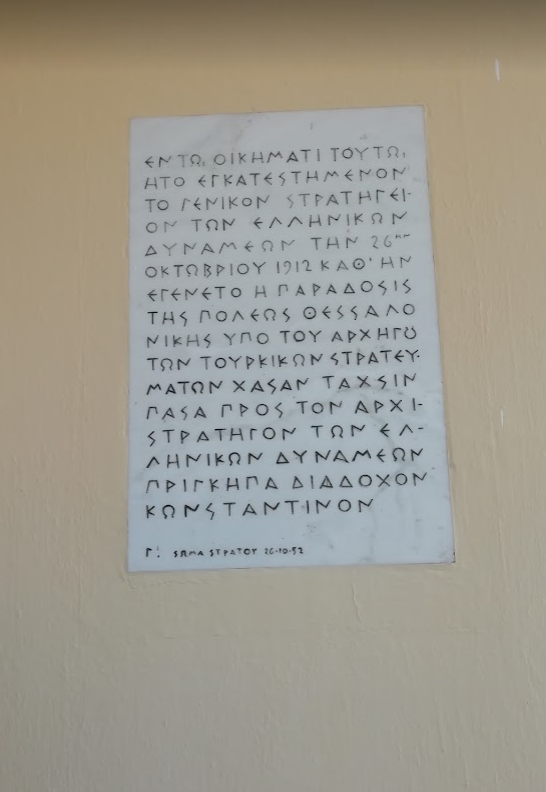 ΕΝ ΤΩ, ΟΙΚΗΜΑΤΙ ΤΟΥΤΩ,
ΗΤΟ ΕΓΚΑΤΕΣΤΗΜΕΝΟΝ
ΤΟ ΓΕΝΙΚΟΝ ΣΤΡΑΤΗΓΕΙ-
ΟΝ ΤΩΝ ΕΛΛΗΝΙΚΩΝ
ΔΥΝΑΜΕΩΝ ΤΗΝ 26ην
ΟΚΤΩΒΡΙΟΥ 1912 ΚΑΘ' ΗΝ
ΕΓΕΝΕΤΟ Η ΠΑΡΑΔΟΣΙΣ
ΤΗΣ ΠΟΛΕΩΣ ΘΕΣΣΑΛΟ
ΝΙΚΗΣ ΥΠΟ ΤΟΥ ΑΡΧΗΓΟΥ
ΤΩΝ ΤΟΥΡΚΙΚΩΝ ΣΤΡΑΤΕΥ-
ΜΑΤΩΝ ΧΑΣΑΝ ΤΑΧΣΙΝ
ΠΑΣΑ ΠΡΟΣ ΤΟΝ ΑΡΧΙ-
ΣΤΡΑΤΗΓΟΝ ΤΩΝ ΕΛ-
ΛΗΝΙΚΩΝ ΔΥΝΑΜΕΩΝ
ΠΡΙΓΚΗΠΑ ΔΙΑΔΟΧΟΝ
ΚΩΝΣΤΑΝΤΙΝΟΝ
Γ! ΣΩΜΑ ΣΤΡΑΤΟΥ 26-10-52